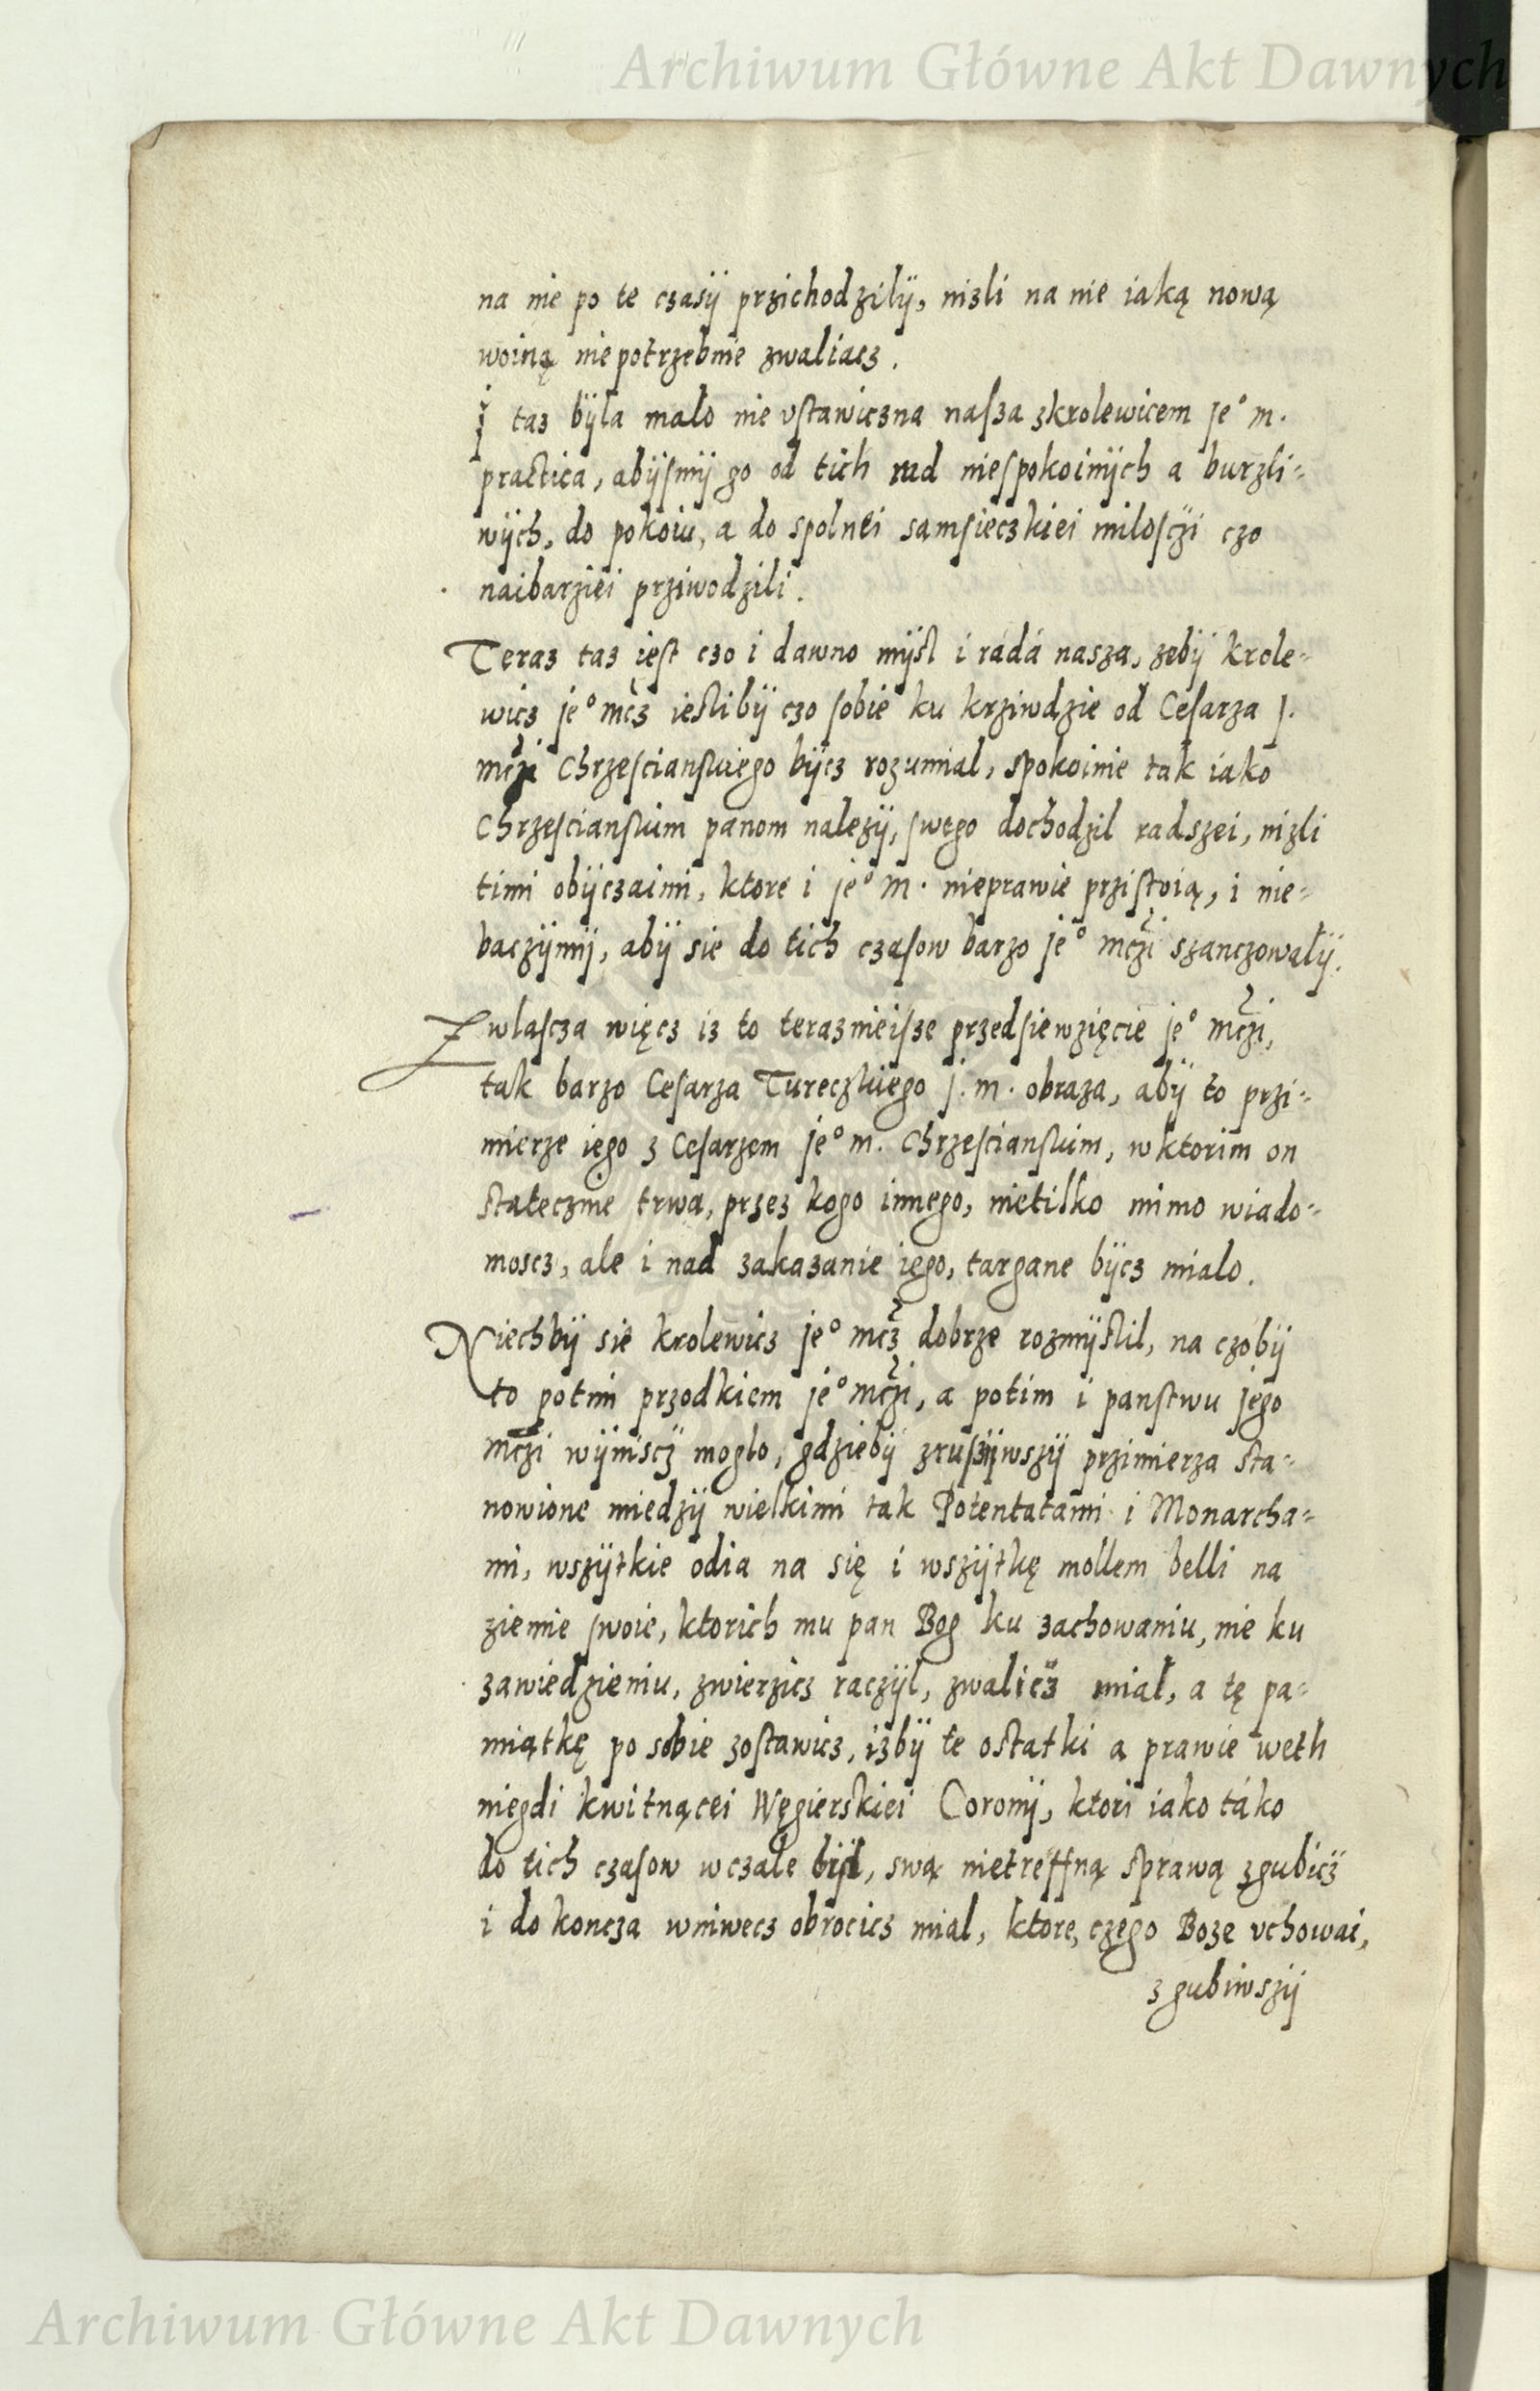 Archiwum Główne Akt Dawnych
na nie po te czasÿ przichodzilÿ, nizli na nie iaką nową
woiną niepotrzebnie zwaliacz.
i taz bÿla malo nie ustawiczna nasza zkrolewicem je° m.
practica, abÿsmÿ go od tich rad niespokoinÿch a burzli=
wÿch, do pokoiu, a do spolnei samsieczkiei milosczi czo
naibarziei przÿwodzili.
Teraz taz iest czo i dawno mÿsl i rada nasza, zebÿ krole=
wicz je° mcz iestlibÿ czo sobie ku krziwdzie od Cesarza j.
mczi chrzescianskiego bÿcz rozumial, spokoinie tak iako
chrzescianskim panom nalezÿ, swego dochodzil radszei, nizli
timi obÿczaimi, ktore i je° m. nieprawie przistoią, i nie=
baczÿmÿ, abÿ sie do tich czasow barzo je° mczi szanczowalÿ.
Zwlascza więcz iz to terazmieisze przedsiewzięcie je° mczi,
tak barzo Cesarza Tureczkiego j. m. obraza, abÿ to przi=
mierze iego z Cesarzem je° m. chrzescianskim, wktorim on
statecznie trwa, przez kogo innego, nietilko mimo wiado=
moscz, ale i nad zakazanie iego, targane bÿcz mialo.
Niechbÿ sie krolewicz je° mcz dobrze rozmÿstil, na czobÿ
to potim przodkiem je° mczi, a potim i panstwu jego
mczi wÿniscz moglo, gdziebÿ zruszÿwszÿ przimierza sta=
nowione miedzÿ wielkimi tak Potentatami i Monarcha=
mi, wszÿtkie odia na się i wszÿtkę mollem belli na
ziemie swoie, ktorich mu pan Bog ku zachowaniu, nie ku
zawiedzieniu, zwierzicz raczÿl, zwalicz mial, a tę pa=
miątkę po sobie zostawicz, izbÿ te ostatki a prawie weth
niegdi kwitnącei Węgierskiei Coronÿ, ktori iako táko
do tich czasow wczale bÿl, swą nietreffną sprawą zgubicz
i do koncza wniwecz obrocicz mial, ktore, czego Boze uchowai,
zgubiwszÿ
Archiwum Główne Akt Dawnych